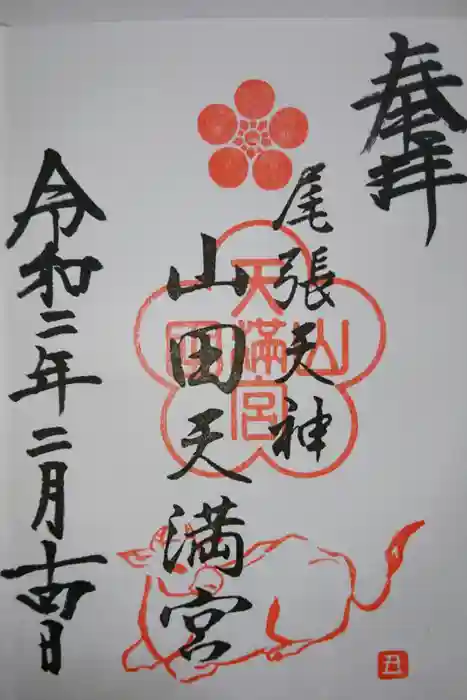 奉拝
尾張天神
山田天満宮
山田
天満宮
令和二年二月十四日
丑